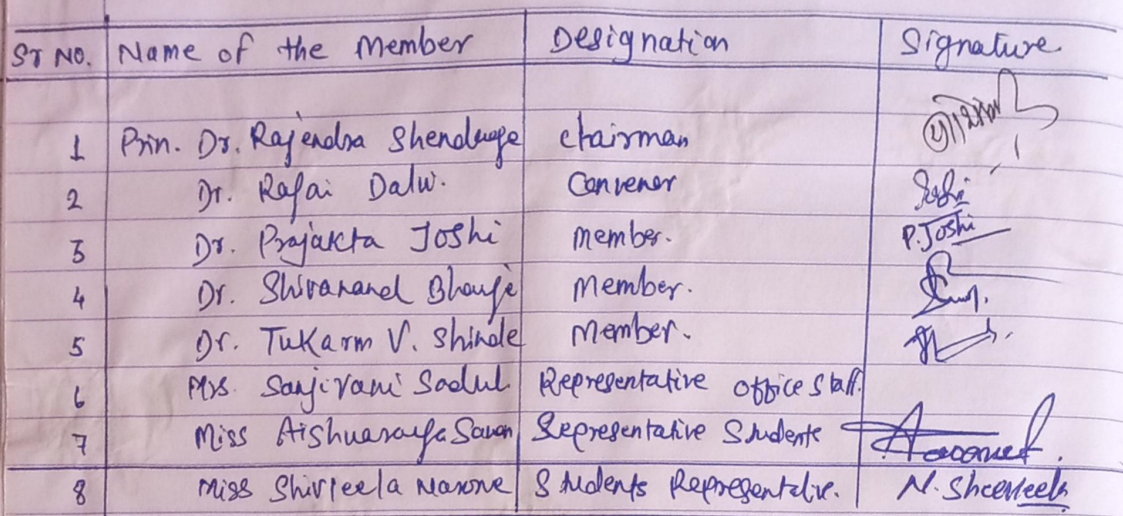 Sr No. Name of the Member Designation Signature
1 Prin. Dr. Rajendra Shendage Chairman
2 Dr. Rafai Dalw. Convenor
3 Dr. Prajakta Joshi Member. P. Joshi
4 Dr. Shivanand Member.
5 Dr. Tukarm V. Shinde Member.
6 Mrs. Sanjivani Sadul Representative office staff.
7 Miss Representative Students
8 Miss Shivleela Students Representative.